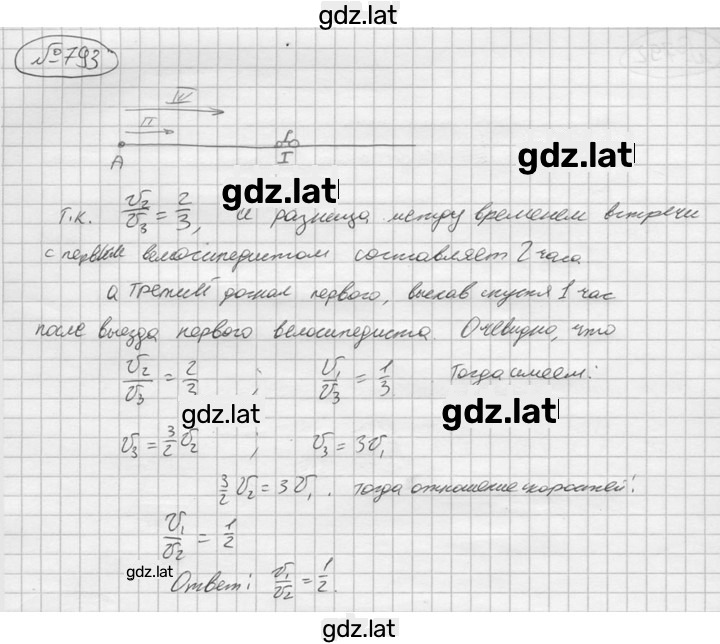 gdz.lat
№793
III
II
A
I
gdz.lat
gdz.lat
Т.к. V₂/V₃ = 2/3, и разница между временем встречи
с первым велосипедистом составляет 2 часа
а третий догнал первого, выехав спустя 1 час
после выезда первого велосипедиста. Очевидно, что
V₂/V₃ = 2/3 ; V₁/V₃ = 1/3. Тогда имеем:
gdz.lat
gdz.lat
V₃ = 3/2 V₂ ; V₃ = 3V₁
3/2 V₂ = 3V₁. тогда отношение скоростей:
V₁/V₂ = 1/2
gdz.lat
Ответ: V₁/V₂ = 1/2.
gdz.lat